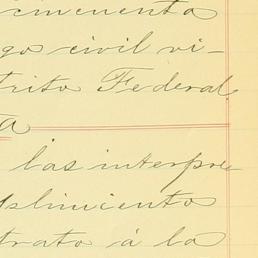 cincuenta
go civil vi-
trito Federal,
a
las interpre
plimiento
trato á la